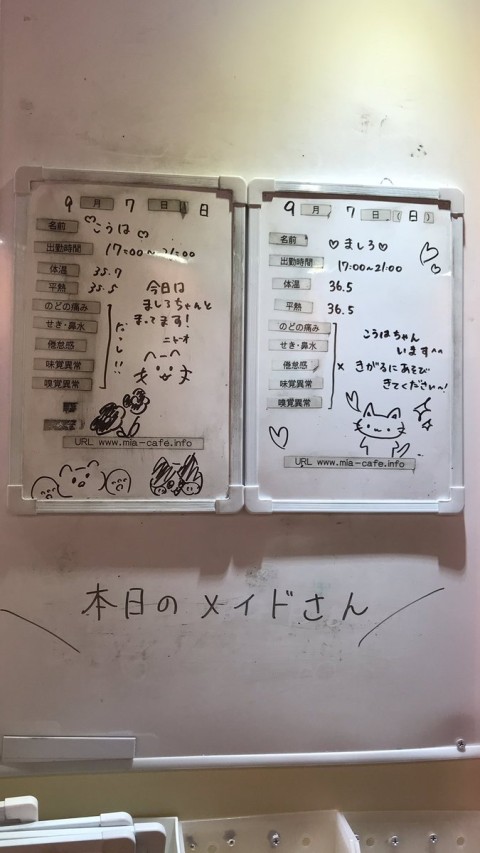 9 月 7 日 日
名前 ♡こうは♡
出勤時間 17:00〜21:00
体温 35.7
平熱 35.5
今日は
ましろちゃんと
まってます!
のどの痛み
せき・鼻水
倦怠感
味覚異常
嗅覚異常
なっし!!
URL www.mia-cafe.info
9 月 7 日 (日)
名前 ♡ましろ♡
出勤時間 17:00~21:00
体温 36.5
平熱 36.5
のどの痛み
せき・鼻水
倦怠感
味覚異常
嗅覚異常
×
こうはちゃん
います^^
きがるにあそび
きてください〜!
URL www.mia-cafe.info
本日のメイドさん